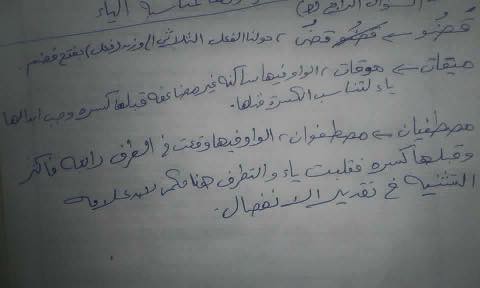 السؤال الرابع
لمناسبة الياء
قُضُو ← قضُو، حولنا الفعل الثلاثي إلى وزن (فعل) بفتح فضم
ميقات ← موقات، الواو فيها ساكنة غير مضاعفة قبلها كسرة وجب ابدالها
ياء لتناسب الكسرة قبلها.
مصطفيان ← مصطفوان، الواو فيها وقعت في الطرف رابعة فأكثر
وقبلها كسرة فقلبت ياء والتطرف هنا لان علامة
التثنية في تقدير الانفصال.